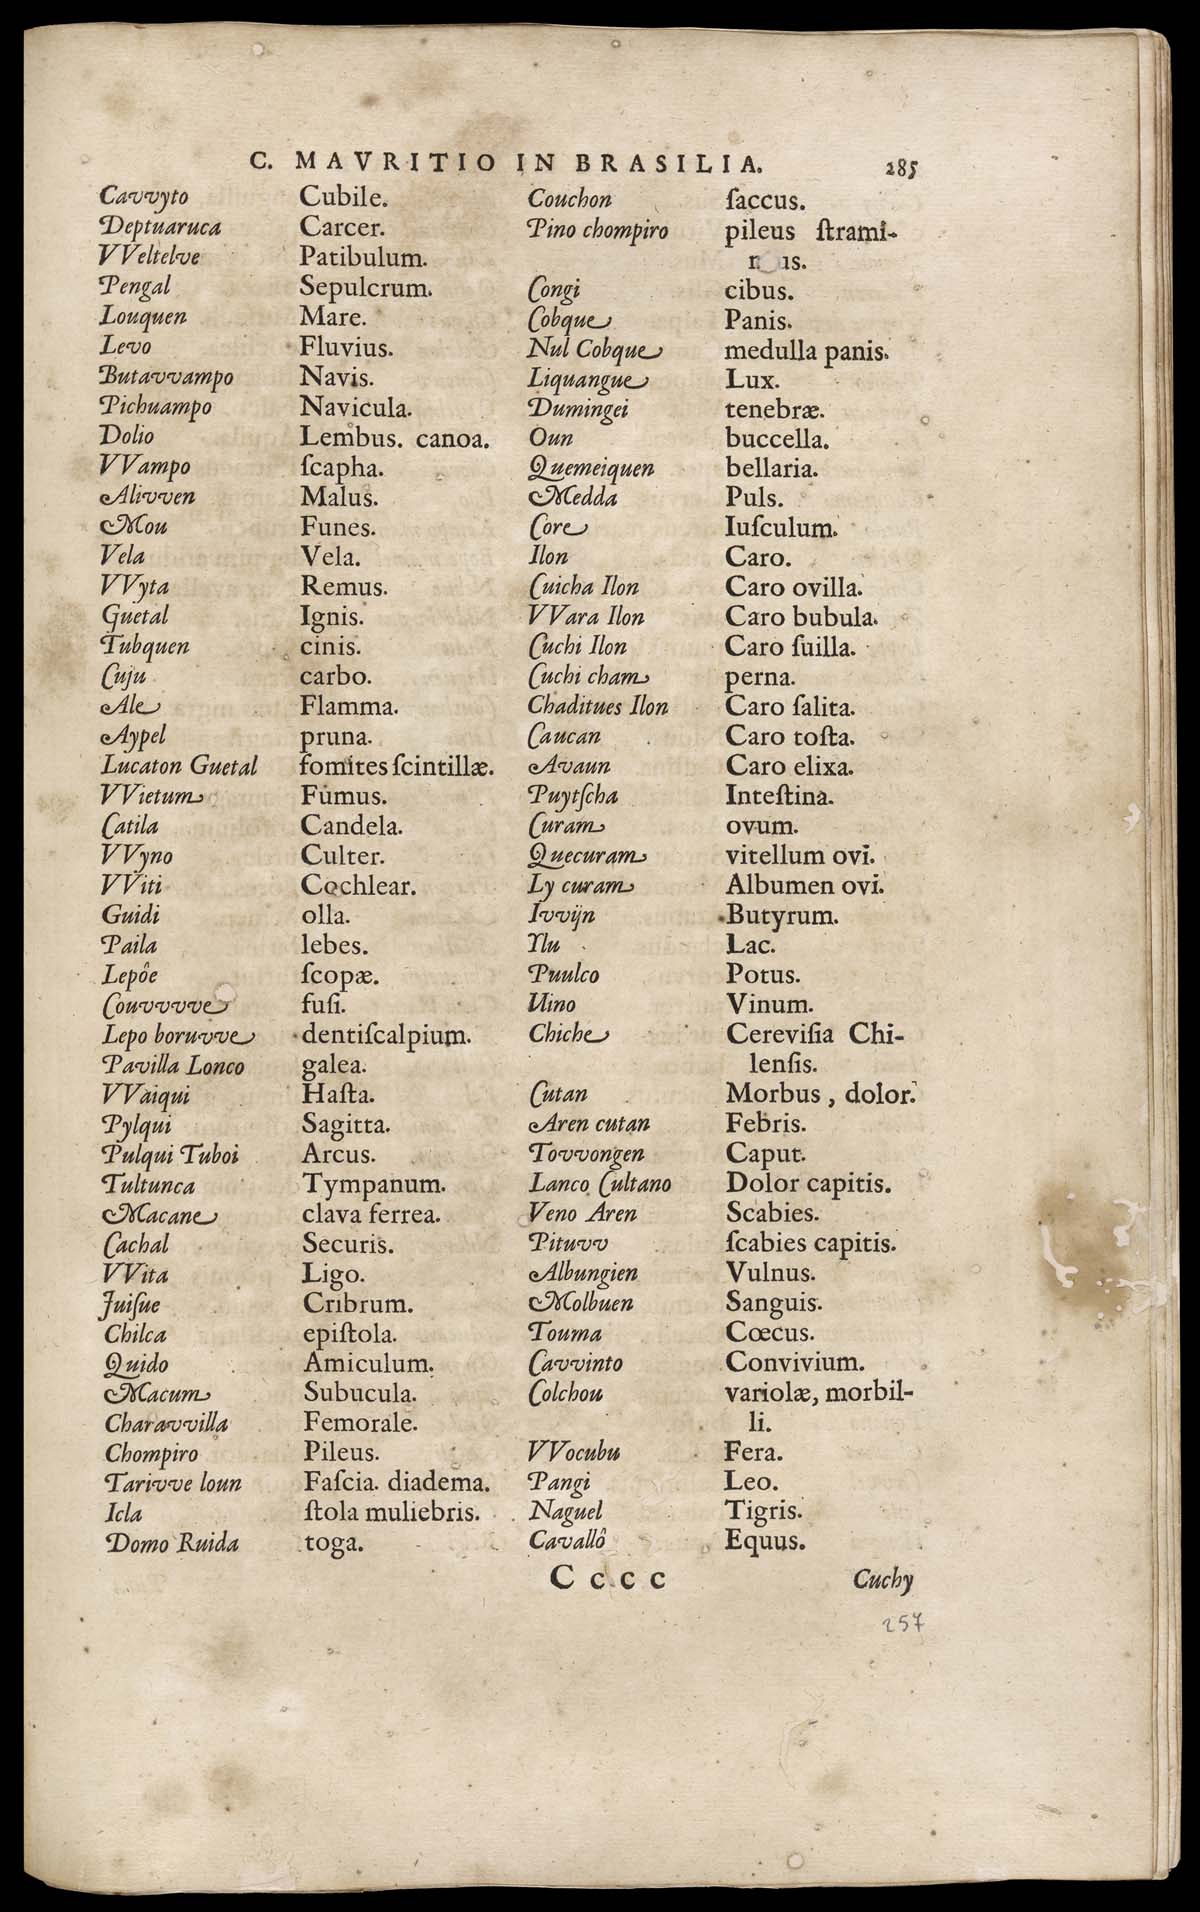 C. MAVRITIO IN BRASILIA. 285
Cavvyto Cubile.
Deptuaruca Carcer.
VVeltelve Patibulum.
Pengal Sepulcrum.
Louquen Mare.
Levo Fluvius.
Butavvampo Navis.
Pichuampo Navicula.
Dolio Lembus. canoa.
VVampo ſcapha.
Alivven Malus.
Mou Funes.
Vela Vela.
VVyta Remus.
Guetal Ignis.
Tubquen cinis.
Cuju carbo.
Ale Flamma.
Aypel pruna.
Lucaton Guetal fomites ſcintillæ.
VVietum Fumus.
Catila Candela.
VVyno Culter.
VViti Cochlear.
Guidi olla.
Paila lebes.
Lepôe ſcopæ.
Couvvvve fuſi.
Lepo boruvve dentiſcalpium.
Pavilla Lonco galea.
VVaiqui Haſta.
Pylqui Sagitta.
Pulqui Tuboi Arcus.
Tultunca Tympanum.
Macane clava ferrea.
Cachal Securis.
VVita Ligo.
Juiſue Cribrum.
Chilca epiſtola.
Quido Amiculum.
Macum Subucula.
Charavvilla Femorale.
Chompiro Pileus.
Tarivve loun Faſcia. diadema.
Icla ſtola muliebris.
Domo Ruida toga.
Couchon ſaccus.
Pino chompiro pileus ſtrami-
us.
Congi cibus.
Cobque Panis.
Nul Cobque medulla panis.
Liquangue Lux.
Dumingei tenebræ.
Oun buccella.
Quemeiquen bellaria.
Medda Puls.
Core Iuſculum.
Ilon Caro.
Cuicha Ilon Caro ovilla.
VVara Ilon Caro bubula.
Cuchi Ilon Caro ſuilla.
Cuchi cham perna.
Chaditues Ilon Caro ſalita.
Caucan Caro toſta.
Avaun Caro elixa.
Puytſcha Inteſtina.
Curam ovum.
Quecuram vitellum ovi.
Ly curam Albumen ovi.
Ivvijn Butyrum.
Ylu Lac.
Puulco Potus.
Uino Vinum.
Chiche Cereviſia Chi-
lenſis.
Cutan Morbus, dolor.
Aren cutan Febris.
Tovvongen Caput.
Lanco Cultano Dolor capitis.
Veno Aren Scabies.
Pituvv ſcabies capitis.
Albungien Vulnus.
Molbuen Sanguis.
Touma Cœcus.
Cavvinto Convivium.
Colchou variolæ, morbil-
li.
VVocubu Fera.
Pangi Leo.
Naguel Tigris.
Cavallô Equus.
C c c c Cuchy
257